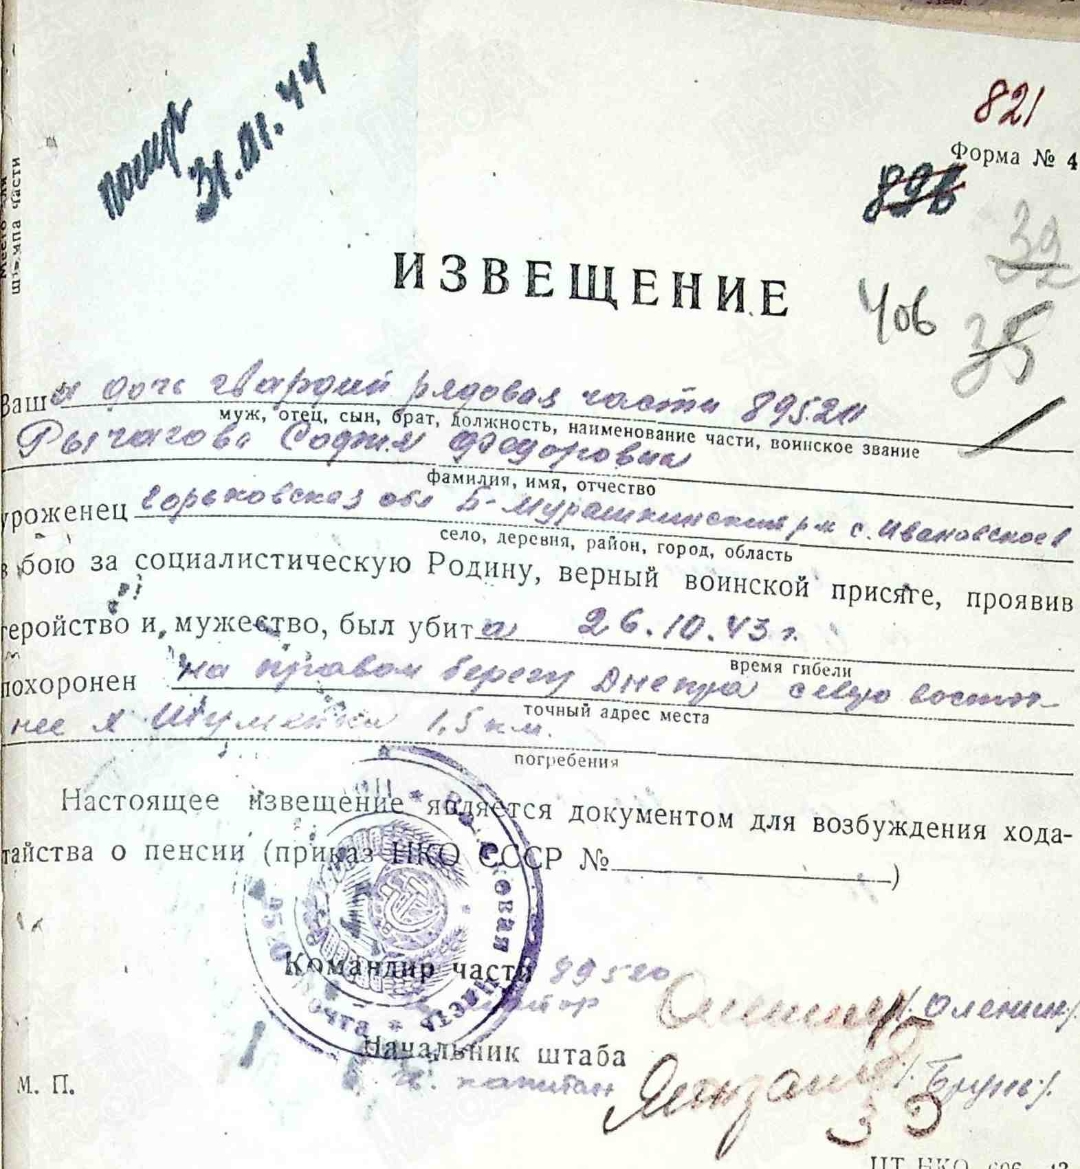 31.01.44
821
Форма № 4
896
39
406
35
ИЗВЕЩЕНИЕ
Ваша дочь гвардии рядовая части 89520
муж, отец, сын, брат, должность, наименование части, воинское звание
Рычагова София Федоровна
фамилия, имя, отчество
уроженец Горьковская обл Б-Мурашкинский р-н с. Ивановское
село, деревня, район, город, область
в бою за социалистическую Родину, верный воинской присяге, проявив
геройство и мужество, был убита 26.10.43 г.
время гибели
похоронен на правом берегу Днепра северо восточ
точный адрес места
нее х 1,5 км.
погребения
Настоящее извещение является документом для возбуждения хода-
тайства о пенсии (приказ НКО СССР № )
Командир части 89520
майор Оленин
Начальник штаба
капитан
М. П.
35